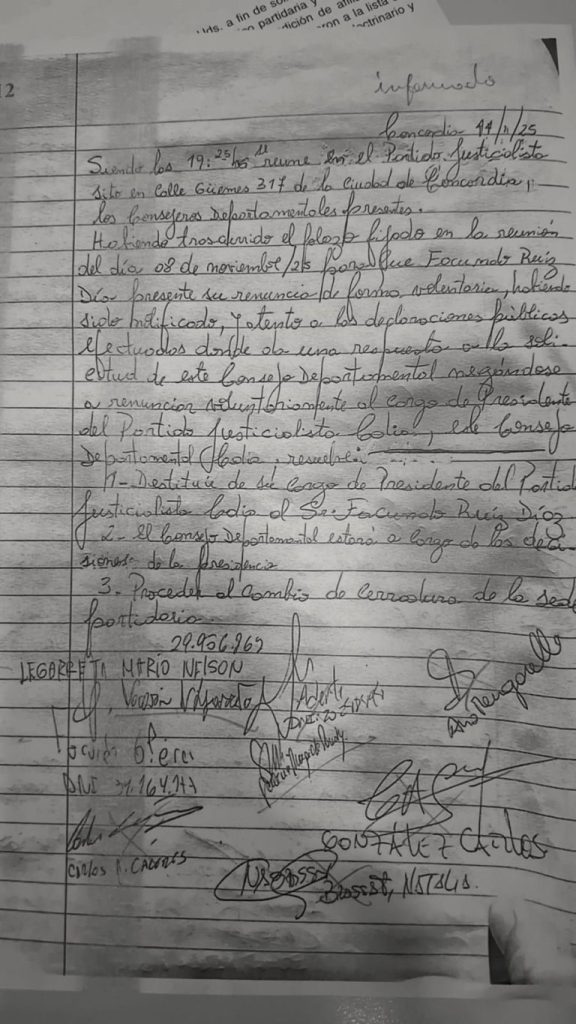 Uds. a fin de
partidaria y
ición de
ron a la lista
ctrinario y
12
informado
Concordia 11/11/25
Siendo las 19:25 hs se reune en el Partido Justicialista
sito en Calle Güemes 317 de la Ciudad de Concordia,
los Consejeros Departamentales presentes.
Habiendo trascurrido el plazo fijado en la reunión
del día 08 de noviembre/25 para que Facundo Ruiz
Díaz presente su renuncia de forma voluntaria, habiendo
sido notificado, y atento a las declaraciones públicas
efectuadas donde da una respuesta a la soli-
citud de este Consejo Departamental negándose
a renunciar voluntariamente al cargo de Presidente
del Partido Justicialista Cdia, este Consejo
Departamental Cdia. resuelve:
1- Destituir de su cargo de Presidente del Partido
Justicialista Cdia al Sr. Facundo Ruiz Díaz
2- El Consejo Departamental estará a cargo de las deci-
siones de la Presidencia
3. Proceder al cambio de cerradura de la sede
partidaria.
29.956.969
LEGARRETA MARIO NELSON
DNI
CARLOS CACERES
GONZALEZ CARLOS
NATALIA.